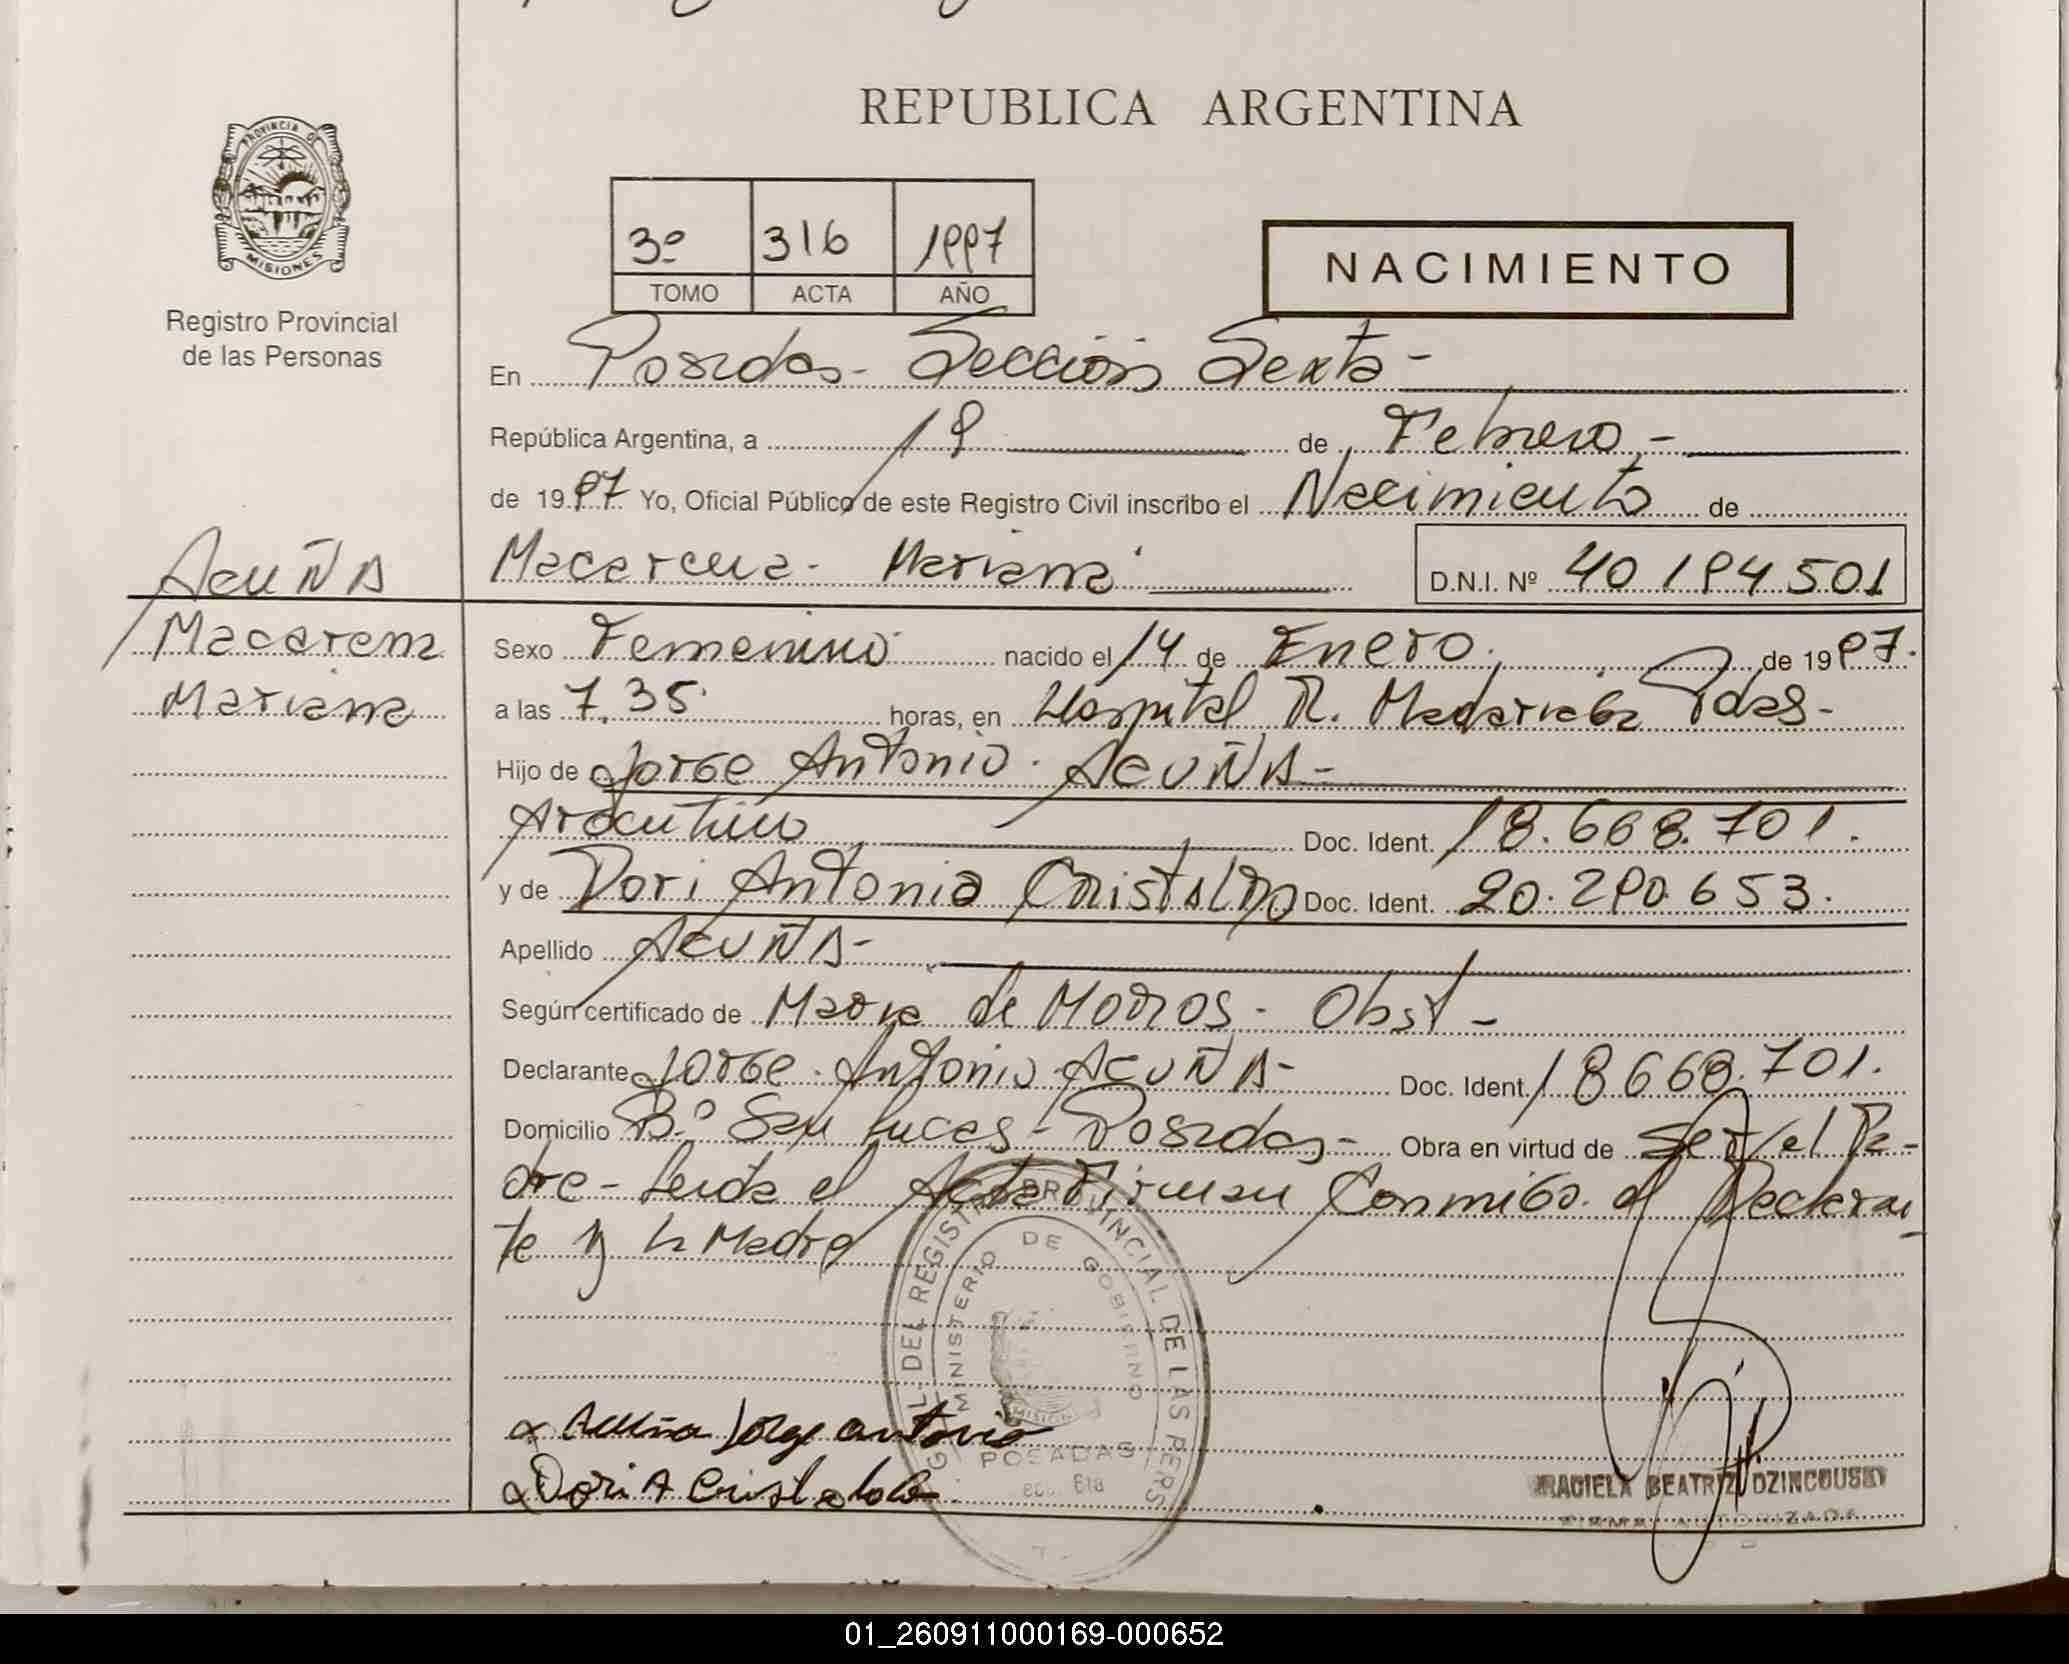 REPUBLICA ARGENTINA
PROVINCIA DE
MISIONES
Registro Provincial
de las Personas
3º 316 1997
TOMO ACTA AÑO
NACIMIENTO
En Posadas - Sección Sexta -
República Argentina, a 19 de Febrero -
de 1997 Yo, Oficial Público de este Registro Civil inscribo el Nacimiento de
Macarena - Mariana D.N.I. Nº 40 194 501
ACUÑA
Macarena
Mariana
Sexo Femenino nacido el 14 de Enero de 1997.
a las 7.35 horas, en Hospital R. Madariaga Pdas -
Hijo de Jorge Antonio ACUÑA -
Argentino Doc. Ident. 18.668.701.
y de Dori Antonia Cristaldo Doc. Ident. 20.290.653.
Apellido ACUÑA -
Según certificado de de Morros - Obst -
Declarante Jorge Antonio ACUÑA - Doc. Ident. 18668.701.
Domicilio Bº San Lucas - Posadas - Obra en virtud de ser el Pa-
dre - Leída el Acta Firman Conmigo el Declaran-
te y la Madre
DEL REGISTRO PROVINCIAL DE LAS PERS
MINISTERIO DE GOBIERNO
MISIONES
POSADAS
6ta
Acuña Jorge antonio
Dori A Cristaldo
GRACIELA BEATRIZ DZINCOUSKI
FIRMA AUTORIZADA
01_260911000169-000652